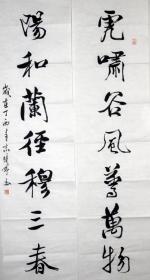 虎啸谷风荨萬物
陽和蘭徑穆三春
歲在丁酉年